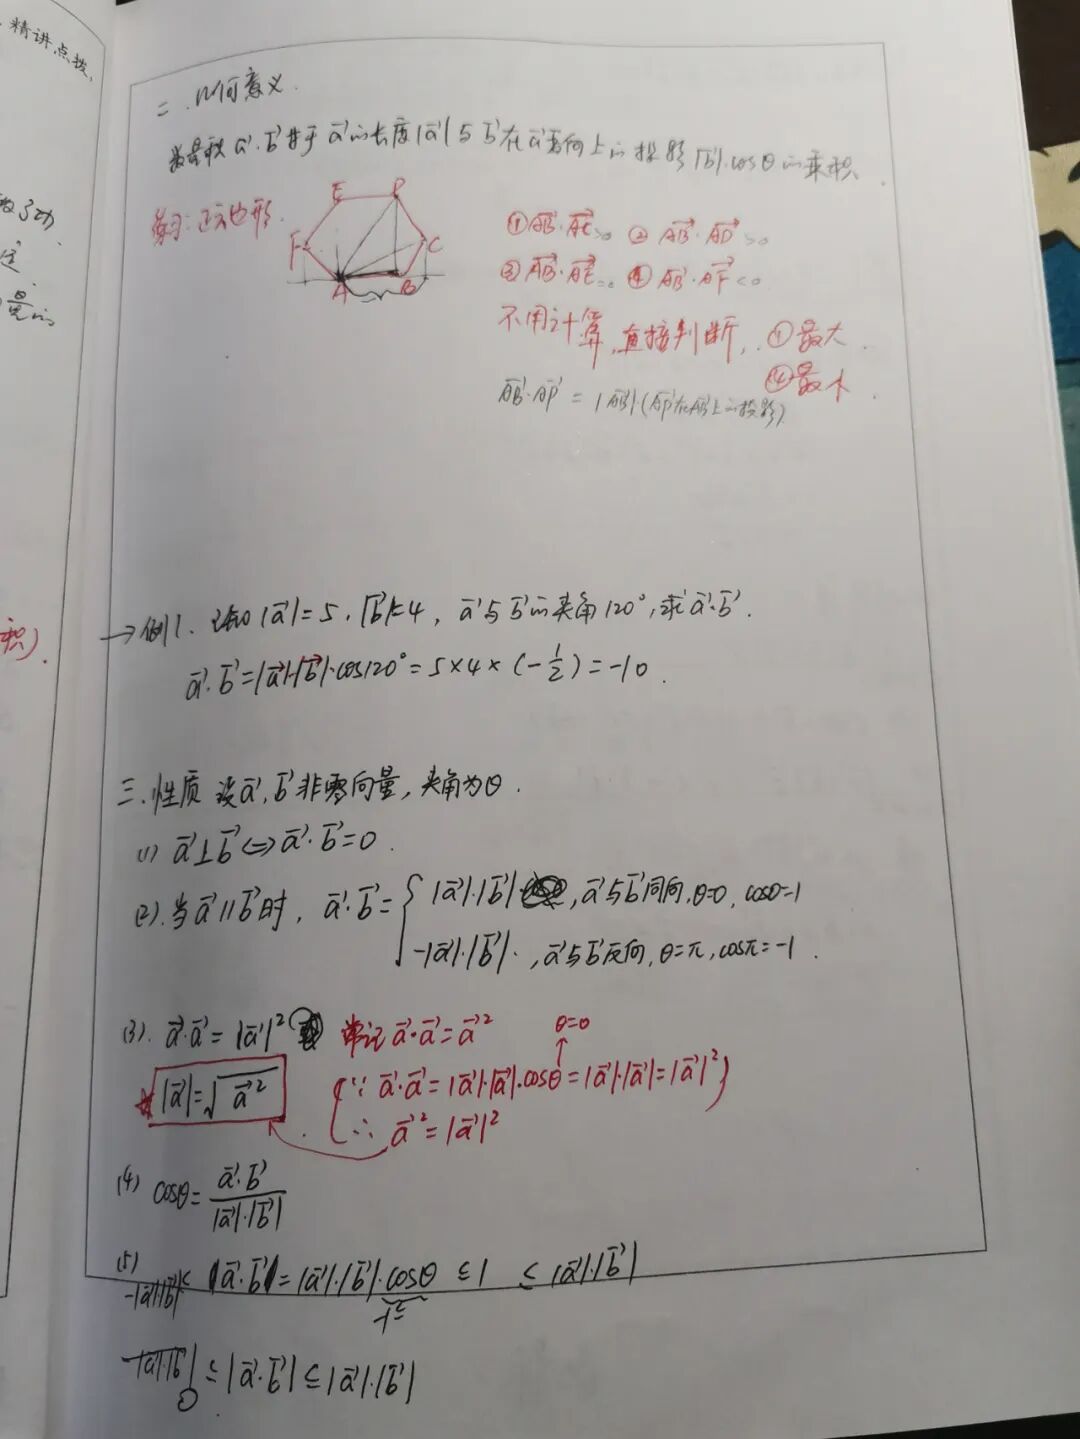 精讲点拨、
二.几何意义.
数量积a⃗·b⃗等于a⃗的长度|a⃗|与b⃗在a⃗方向上的投影|b⃗|·cosθ的乘积.
练习:正六边形.
E D
F C
A B
①AB⃗·AC⃗>0 ②AB⃗·AD⃗>0
③AB⃗·AE⃗=0 ④AB⃗·AF⃗<0
不用计算,直接判断,①最大.
④最小.
AB⃗·AP⃗=|AB⃗|·(AP⃗在AB⃗上的投影)
积).
→例1.已知|a⃗|=5,|b⃗|=4,a⃗与b⃗的夹角120°,求a⃗·b⃗.
a⃗·b⃗=|a⃗|·|b⃗|·cos120°=5×4×(-1/2)=-10.
三.性质 设a⃗,b⃗非零向量,夹角为θ.
(1) a⃗⊥b⃗⇔a⃗·b⃗=0.
(2).当a⃗∥b⃗时,a⃗·b⃗={|a⃗|·|b⃗|·,a⃗与b⃗同向,θ=0,cos0=1
-|a⃗|·|b⃗|·,a⃗与b⃗反向,θ=π,cosπ=-1.
(3).a⃗·a⃗=|a⃗|² 常记a⃗·a⃗=a⃗² θ=0
★|a⃗|=√a⃗² (∵a⃗·a⃗=|a⃗|·|a⃗|·cosθ=|a⃗|·|a⃗|=|a⃗|²)
∴a⃗²=|a⃗|²
(4) cosθ=a⃗·b⃗/|a⃗|·|b⃗|
(5)
-|a⃗||b⃗|≤a⃗·b⃗=|a⃗|·|b⃗|·cosθ≤1 ≤|a⃗|·|b⃗|
-1≤
0≤|a⃗·b⃗|≤|a⃗|·|b⃗|